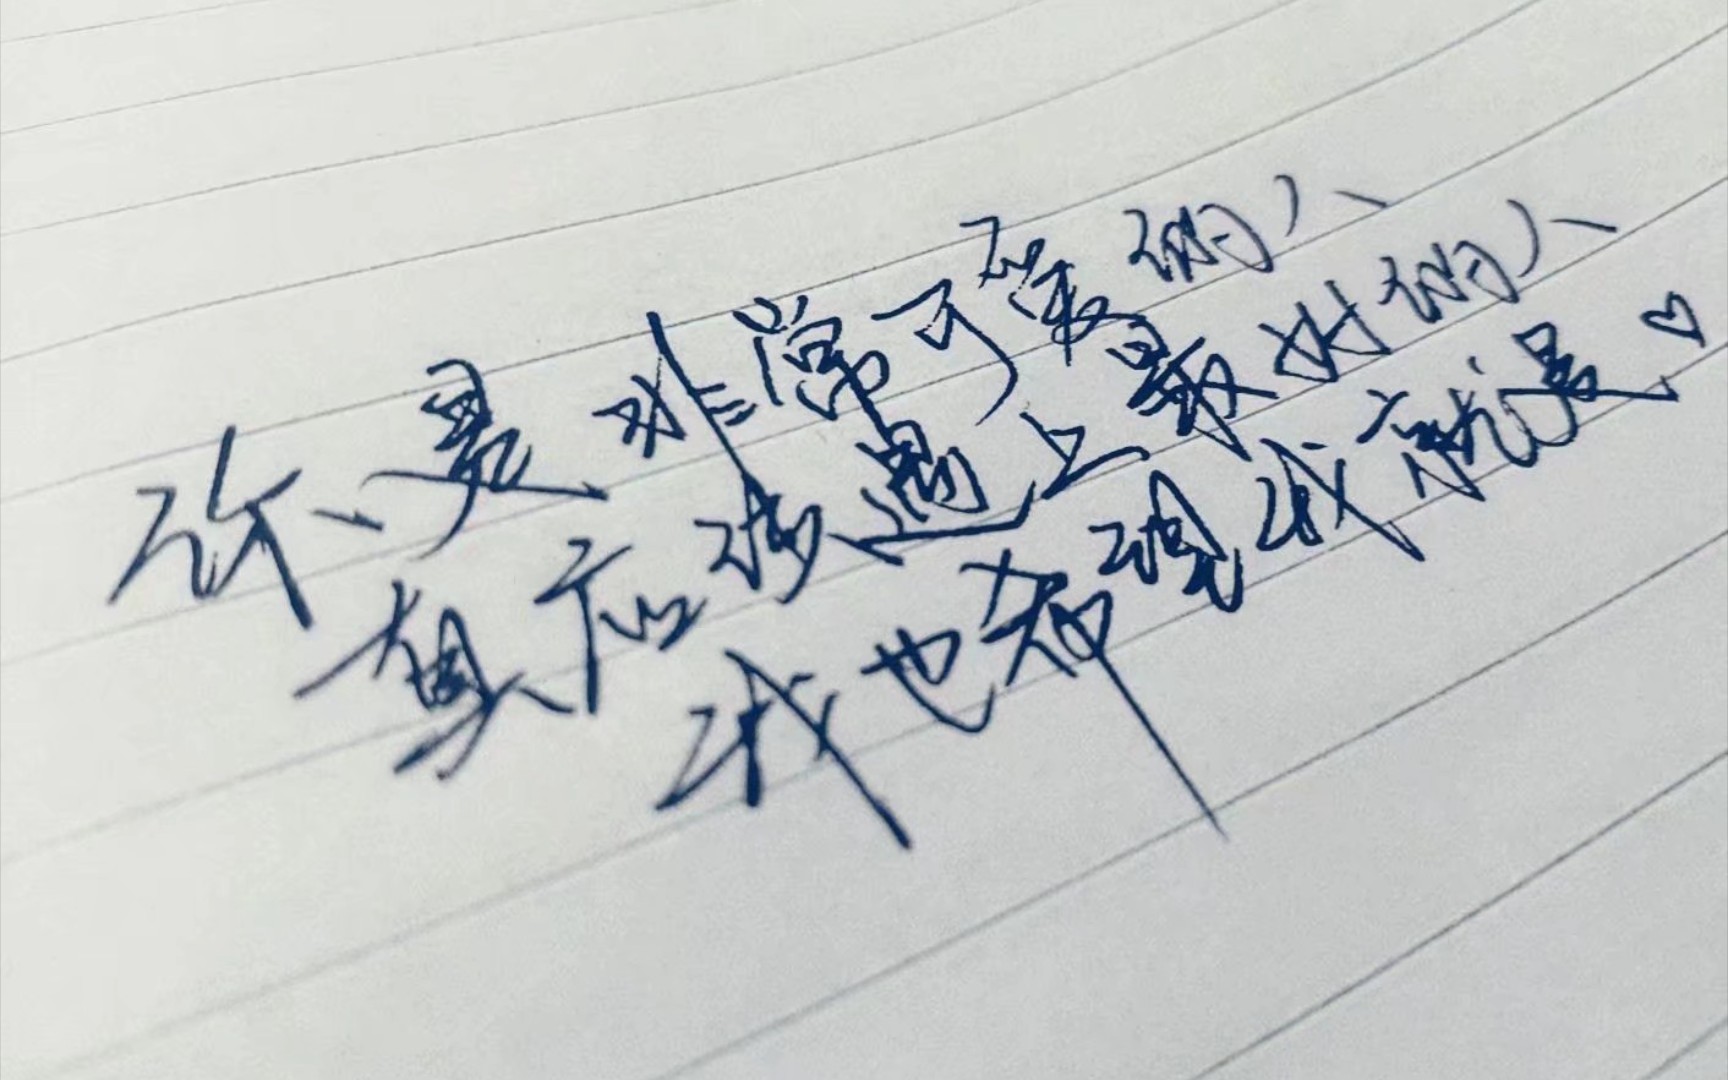 你是非常可爱的人
真应该遇上最好的人
我也希望我就是♡